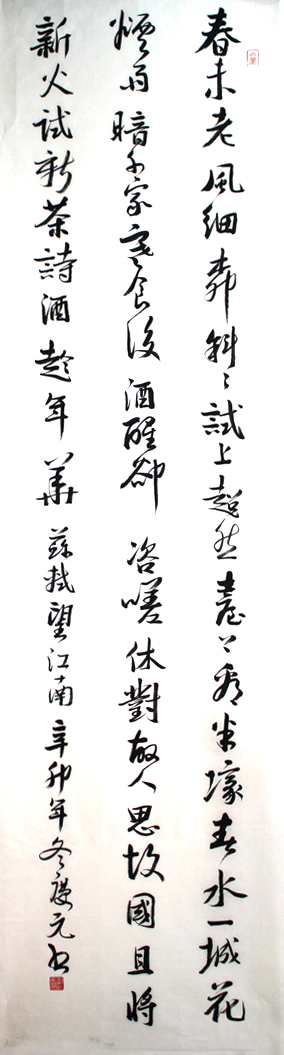 春未老風細柳斜〻試上超然臺上看半壕春水一城花
煙雨暗千家寒食後酒醒卻咨嗟休對故人思故國且將
新火試新茶詩酒趁年華蘇軾望江南辛卯年冬慶元書